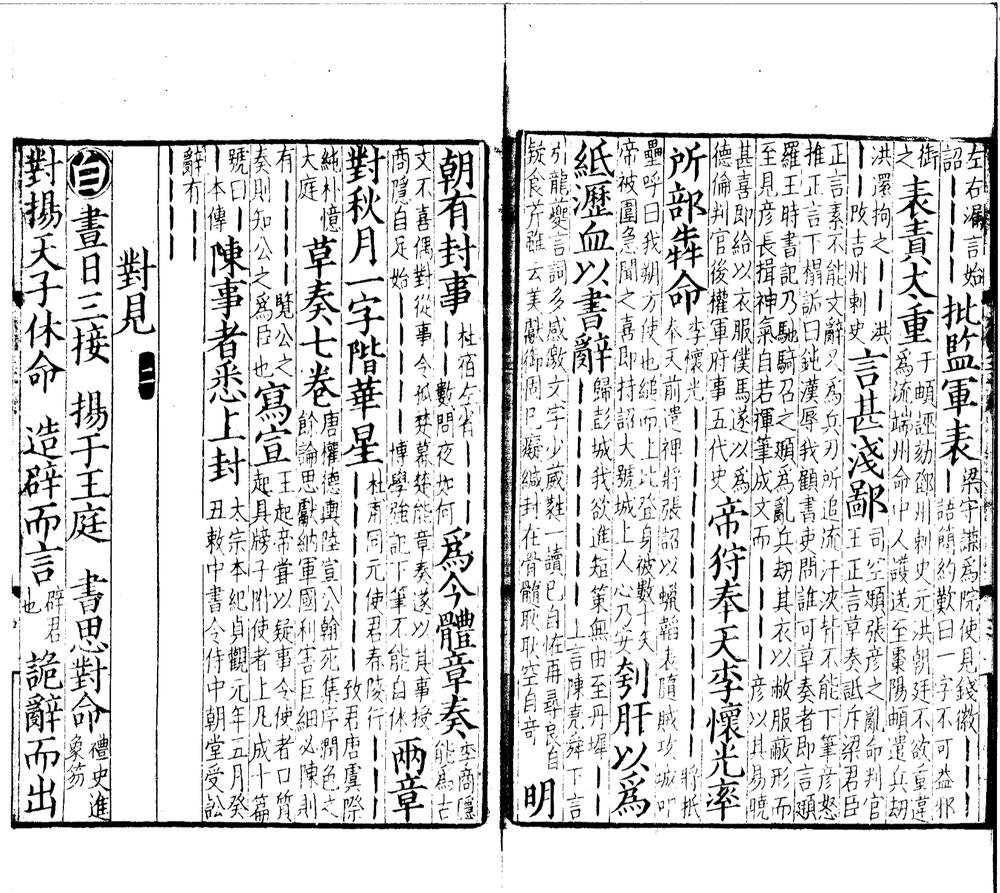 左右漏言始詔 批監軍表 梁守謙為院使見錢徽語簡約歎曰一字不可益邪
衙之 表責大重 于頔誣劾鄧州刺史元洪朝廷不欲重違為流端州命中人護送至棗陽頔遣兵刼
洪還拘之洪改吉州刺史 言甚淺鄙 司空頲張彥之亂命判官王正言草奏詆斥梁君臣
正言素不能文辭又為兵刃所追流汗浹背不能下筆彥怒推正言下榻訴曰鈍漢辱我顧書吏問誰可草奏者即言頲
羅王時書記乃馳騎召之頲為亂兵刼其衣以敝服蔽形而至見彥長揖神氣自若揮筆成文而彥以其易曉
甚喜即給以衣服僕馬遂以為德倫判官後權軍府事五代史 帝狩奉天李懷光率
所部犇命 李懷光將抵奉天前遣裨將張詔以蠟韜表隨賊攻城叩
壘呼曰我朔方使也縋而上比登身被數十矢帝被圍急聞之喜即持詔大號城上人心乃安 刳肝以為
紙瀝血以書辭 歸彭城我欲進短策無由至丹墀上言陳堯舜下言
引龍夔言詞多感激文字少葳蕤一讀已自怪再尋良自疑食芹雖云美獻御固已癡緘封在骨髓耿耿空自奇 明
朝有封事 杜宿左省數問夜如何 為今體章奏 李商隱能為古
文不喜偶對從事令狐楚幕楚能章奏遂以其事授商隱自足始博學強記下筆不能自休 兩章
對秋月一字階華星 杜甫同元使君舂陵行致君唐虞際
純朴憶大庭 草奏七卷 唐權德輿陸宣公翰苑集序潤色之餘論思獻納軍國利害巨細必陳則
有覽公之奏則知公之為臣也 寫宣 王起帝嘗以疑事令使者口質起具牓子附使者上凡成十篇
號曰本傳 陳事者悉上封 太宗本紀貞觀元年五月癸丑敕中書令侍中朝堂受訟
辭有
對見 二
白 晝日三接 揚于王庭 書思對命 禮史進象笏
對揚天子休命 造辟而言 辟君也 詭辭而出